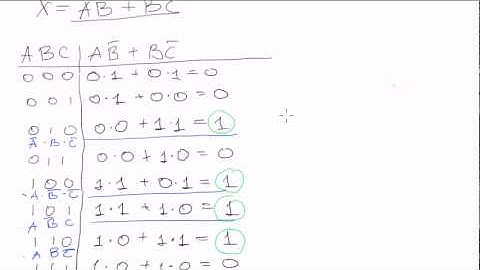 X = AB̄ + BC̄
A B C | AB̄ + BC̄
0 0 0 | 0·1 + 0·1 = 0
0 0 1 | 0·1 + 0·0 = 0
0 1 0 | 0·0 + 1·1 = 1
Ā·B·C̄
0 1 1 | 0·0 + 1·0 = 0
1 0 0 | 1·1 + 0·1 = 1
A·B̄·C̄
1 0 1 | 1·1 + 1·0 = 1
A B̄ C
1 1 0 | 1·0 + 1·1 = 1
A B C̄
1 1 1 | 1·0 + 1·0 = 0